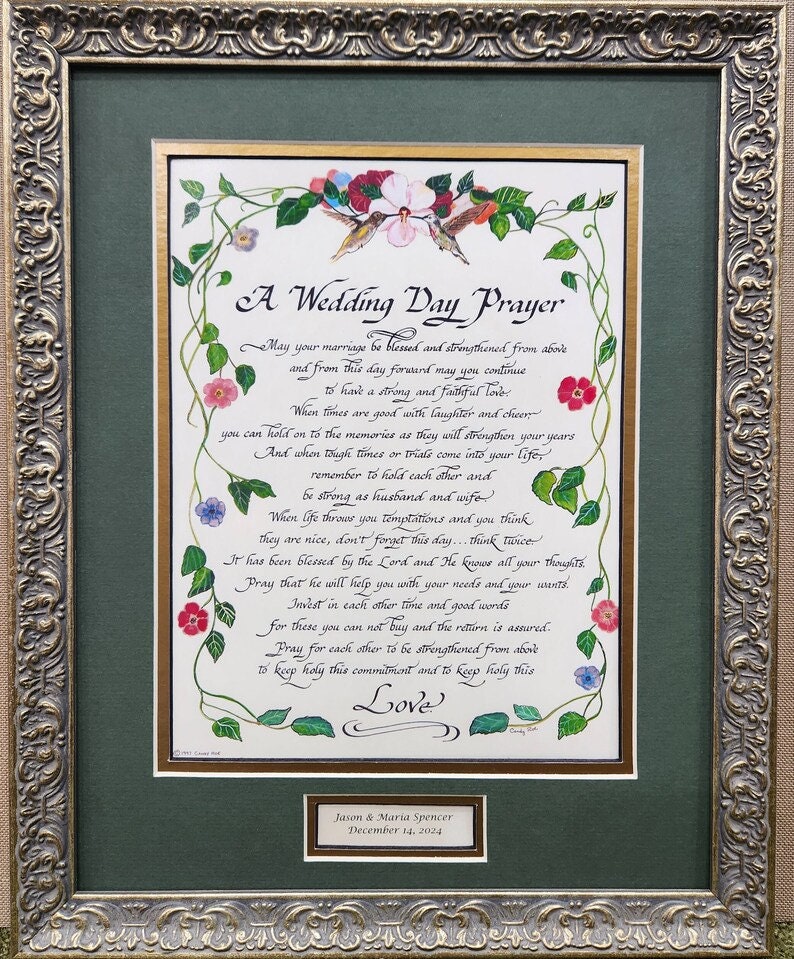 A Wedding Day Prayer
May your marriage be blessed and strengthened from above
and from this day forward may you continue
to have a strong and faithful love.
When times are good with laughter and cheer,
you can hold on to the memories as they will strengthen your years
And when tough times or trials come into your life,
remember to hold each other and
be strong as husband and wife.
When life throws you temptations and you think
they are nice, don't forget this day...think twice.
It has been blessed by the Lord and He knows all your thoughts.
Pray that he will help you with your needs and your wants.
Invest in each other time and good words
for these you can not buy and the return is assured.
Pray for each other to be strengthened from above
to keep holy this commitment and to keep holy this
Love.
© 1997 Candy
Candy
Jason & Maria Spencer
December 14, 2024